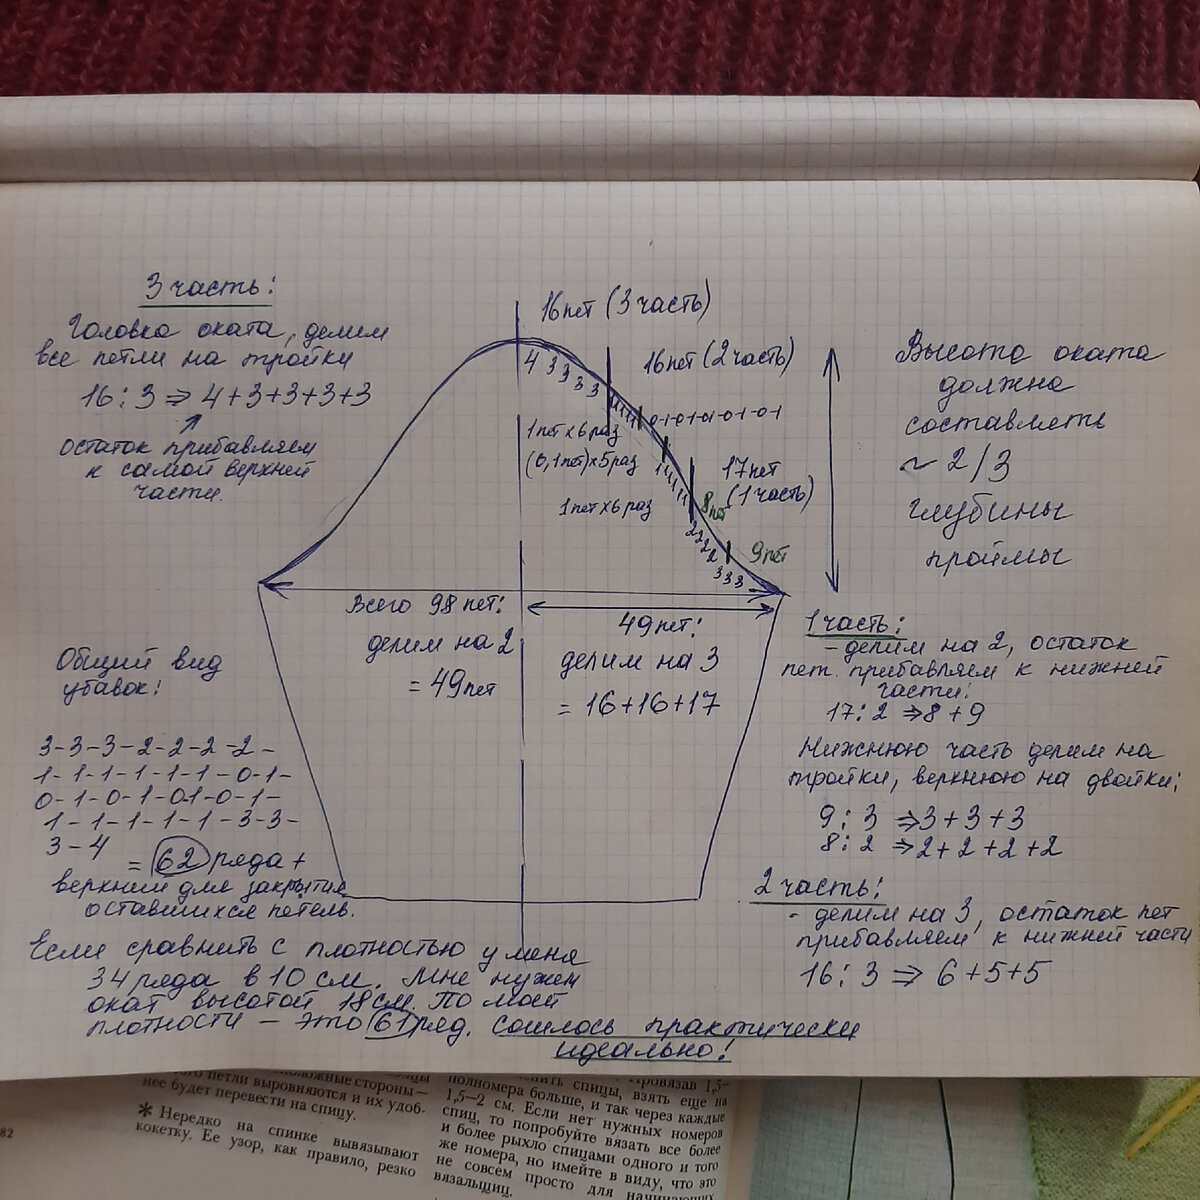 3 часть:
Головка оката, делим
все петли на тройки
16:3 ⇒ 4+3+3+3+3
остаток прибавляем
к самой верхней
части.
16 пет (3 часть)
16 пет (2 часть)
4 3 3 3 3
0-1-0-1-01-0-1-0-1
1 пет х 6 раз
(0,1 пет) х 5 раз
1 пет х 6 раз
17 пет
(1 часть)
8 пет
2 2 2 2
9 пет
3 3 3
Высота оката
должна
составлять
~ 2/3
глубины
проймы
Всего 98 пет:
делим на 2
= 49 пет
49 пет:
делим на 3
= 16+16+17
Общий вид
убавок:
3-3-3-2-2-2-2-
1-1-1-1-1-1-0-1-
0-1-0-1-01-0-1-
1-1-1-1-1-3-3-
3-4
= 62 ряда +
верхний для закрытия
оставшихся петель.
Если сравнить с плотностью у меня
34 ряда в 10 см. Мне нужен
окат высотой 18 см. По моей
плотности – это 61 ряд. Сошлось практически
идеально!
1 часть:
- делим на 2, остаток
пет. прибавляем к нижней
части:
17:2 ⇒ 8+9
Нижнюю часть делим на
тройки, верхнюю на двойки:
9:3 ⇒ 3+3+3
8:2 ⇒ 2+2+2+2
2 часть:
- делим на 3, остаток пет
прибавляем к нижней части
16:3 ⇒ 6+5+5
петли выровняются и их удоб-
нее будет перевести на спицу.
* Нередко на спинке вывязывают
кокетку. Ее узор, как правило, резко
82
спицы, взять еще на
полномера больше, и так через каждые
1,5—2 см. Если нет нужных номеров
спиц, то попробуйте вязать все более
и более рыхло спицами одного и того
же номера, но имейте в виду, что это
не совсем просто для начинающих
вязальщиц.